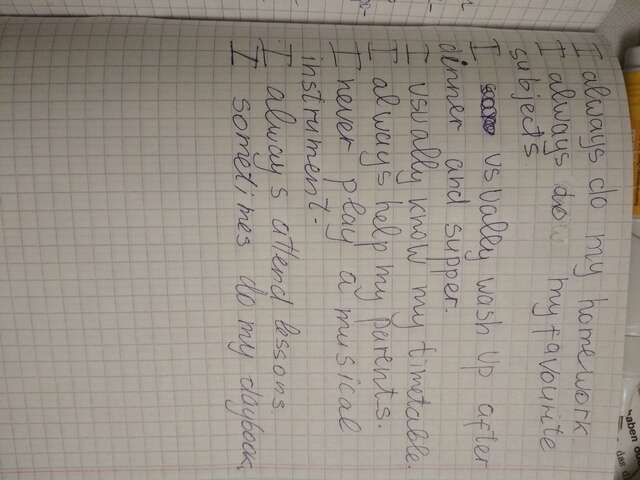 I always do my homework
I always do my favourite
subjects.
I usually wash up after
dinner and supper.
I usually know my timetable.
I always help my parents.
I never play a musical
instrument.
I always attend lessons
I sometimes do my daybook.
haben
das